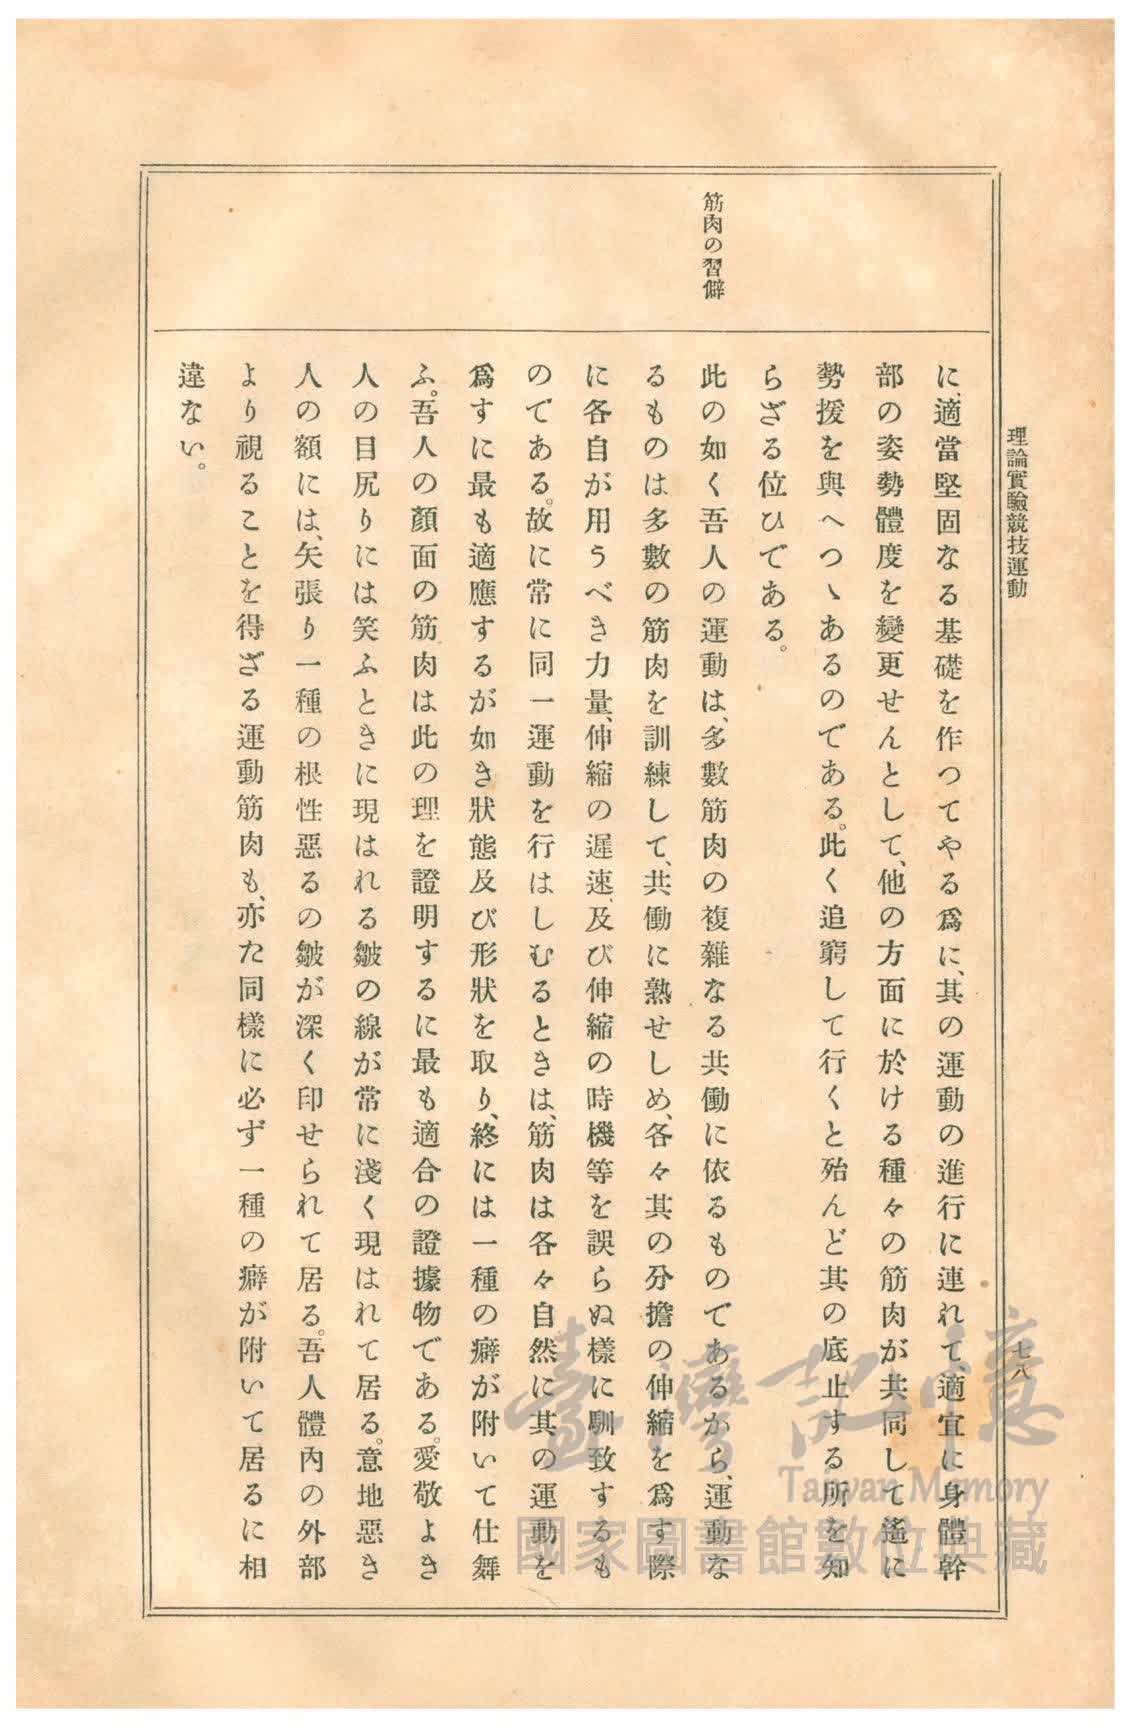 理論實驗競技運動
七八
筋肉の習僻
に、適當堅固なる基礎を作つてやる爲に、其の運動の進行に連れて、適宜に身體幹
部の姿勢體度を變更せんとして、他の方面に於ける種々の筋肉が共同して遙に
勢援を與へつゝあるのである。此く追窮して行くと殆んど其の底止する所を知
らざる位ひである。
此の如く吾人の運動は、多數筋肉の複雜なる共働に依るものであるから、運動な
るものは多數の筋肉を訓練して、共働に熟せしめ、各々其の分擔の伸縮を爲す際
に各自が用うべき力量、伸縮の遲速、及び伸縮の時機等を誤らぬ樣に馴致するも
のである。故に常に同一運動を行はしむるときは、筋肉は各々自然に其の運動を
爲すに最も適應するが如き狀態及び形狀を取り、終には一種の癖が附いて仕舞
ふ。吾人の顏面の筋肉は此の理を證明するに最も適合の證據物である。愛敬よき
人の目尻りには笑ふときに現はれる皺の線が常に淺く現はれて居る。意地惡き
人の額には、矢張り一種の根性惡るの皺が深く印せられて居る。吾人體內の外部
より視ることを得ざる運動筋肉も、亦た同樣に必ず一種の癖が附いて居るに相
違ない。
臺灣記憶
Taiwan Memory
國家圖書館數位典藏